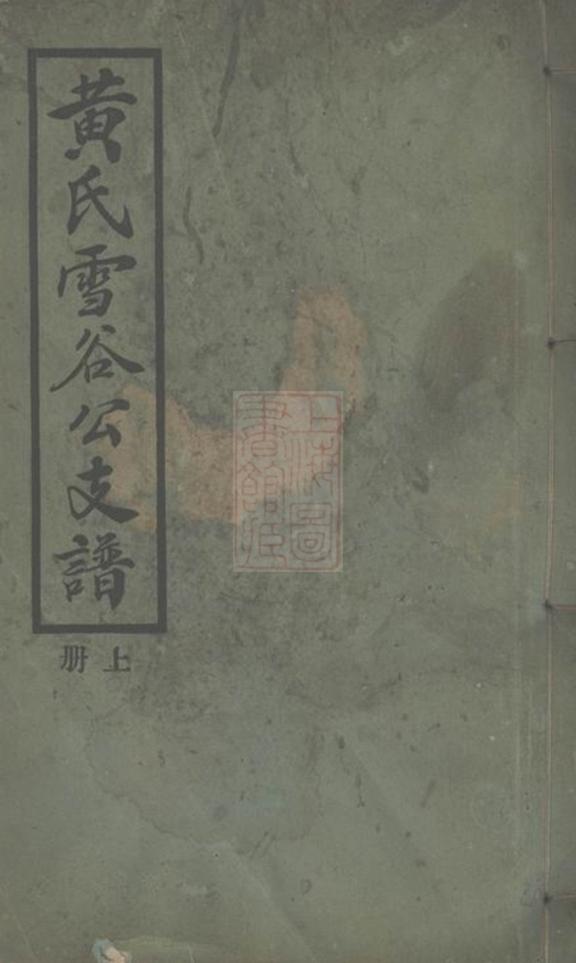 黄氏雪谷公支譜
上册
上海圖
書館藏